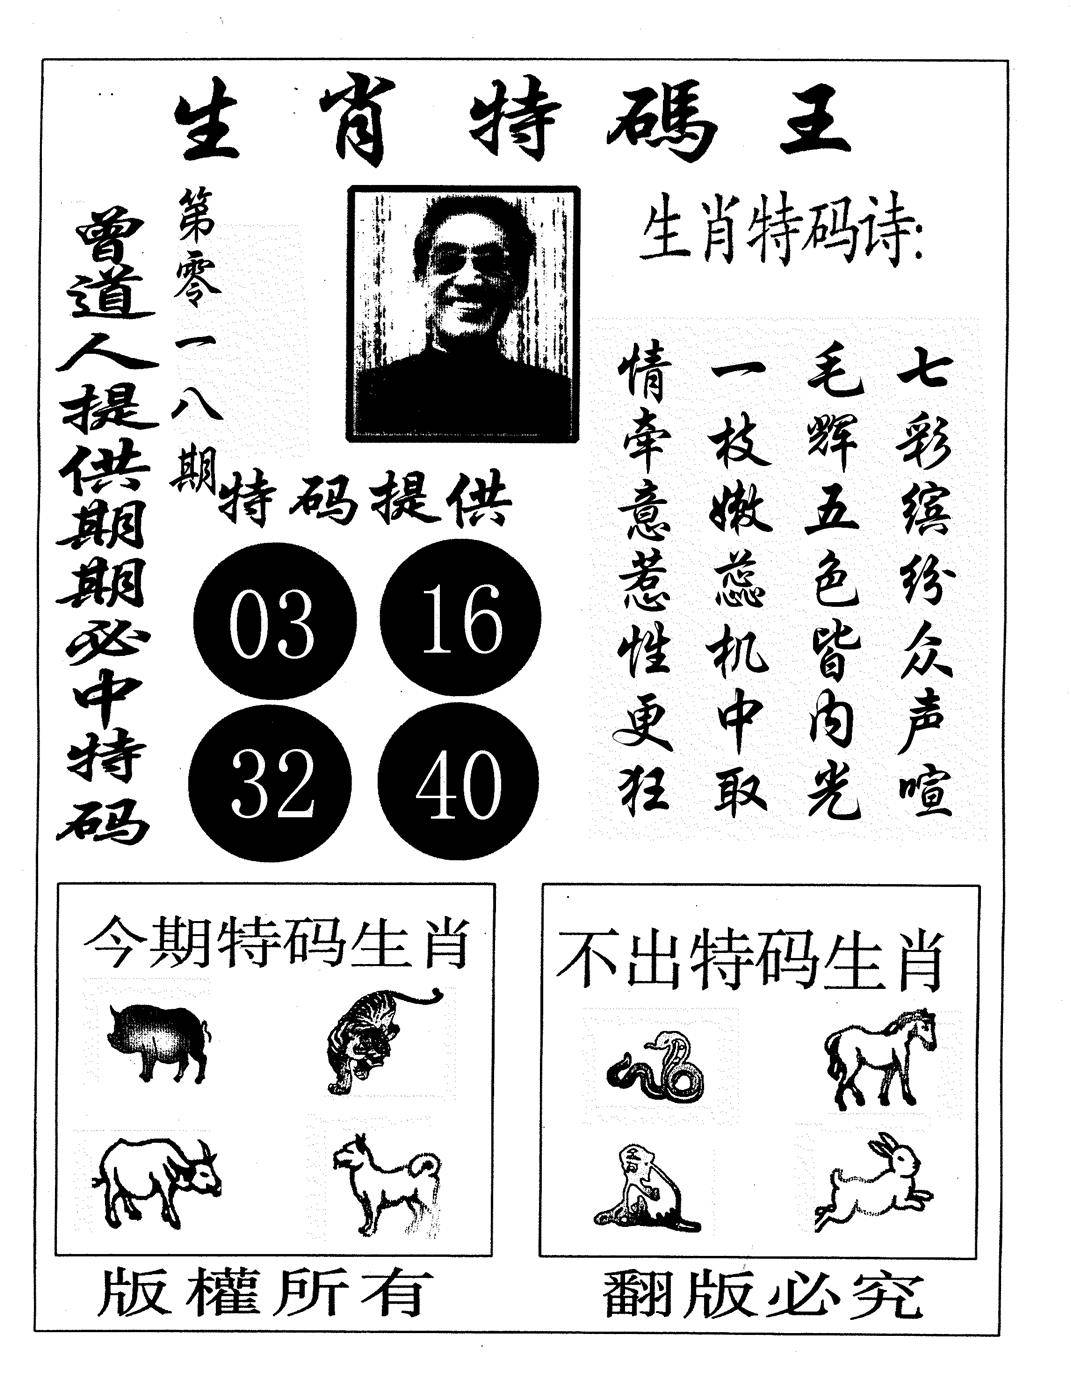 生肖特碼王
曾道人提供期期必中特码
第零一八期
生肖特码诗:
七彩缤纷众声喧
毛辉五色皆内光
一枝嫩蕊机中取
情牵意惹性更狂
特码提供
03 16
32 40
今期特码生肖
不出特码生肖
版權所有
翻版必究